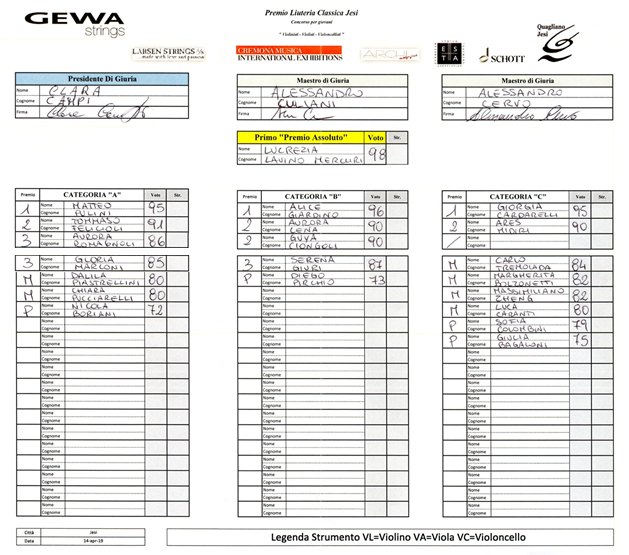 GEWA
strings
Premio Liuteria Classica Jesi
Concorso per giovani
" Violinisti - Violisti - Violoncellisti "
LARSEN STRINGS A/S
CREMONA MUSICA
INTERNATIONAL EXHIBITIONS
ARCHI
ESTA
SCHOTT
Quagliano
Jesi
Presidente Di Giuria
Nome CLARA
Cognome CAMPI
Firma
Maestro di Giuria
Nome ALESSANDRO
Cognome CULIANI
Firma
Maestro di Giuria
Nome ALESSANDRO
Cognome CERVO
Firma Alessandro Cervo
Primo "Premio Assoluto" Voto Str.
Nome LUCREZIA
Cognome LAVINO MERCURI 98
Premio CATEGORIA "A" Voto Str.
1 Nome MATTEO 95
Cognome FULINI
2 Nome TOMMASO 91
Cognome FELICIOLI
3 Nome AURORA 86
Cognome ROMAGNOLI
3 Nome GLORIA 85
Cognome MARCONI
M Nome DALILA 80
Cognome PIASTRELLINI
M Nome CHIARA 80
Cognome PUCCIARELLI
P Nome NICOLA 72
Cognome BORIANI
Premio CATEGORIA "B" Voto Str.
1 Nome ALICE 96
Cognome GIARDINO
2 Nome AURORA 90
Cognome LENA
2 Nome 90
Cognome CIONGOLI
3 Nome SERENA 87
Cognome GIURI
P Nome DIEGO 73
Cognome PIRCHIO
Premio CATEGORIA "C" Voto Str.
1 Nome GIORGIA 95
Cognome CARDARELLI
2 Nome ARES 90
Cognome MIDIRI
/ Nome
Cognome
M Nome CARLO 84
Cognome TREMOLADA
M Nome MARGHERITA 82
Cognome BOLZONETTI
M Nome MASSIMILIANO 82
Cognome ZHENG
M Nome LUCA 80
Cognome CARANTI
P Nome SOFIA 79
Cognome COLOMBINI
P Nome GIULIA 75
Cognome BAGALONI
Città Jesi
Data 14-apr-19
Legenda Strumento VL=Violino VA=Viola VC=Violoncello